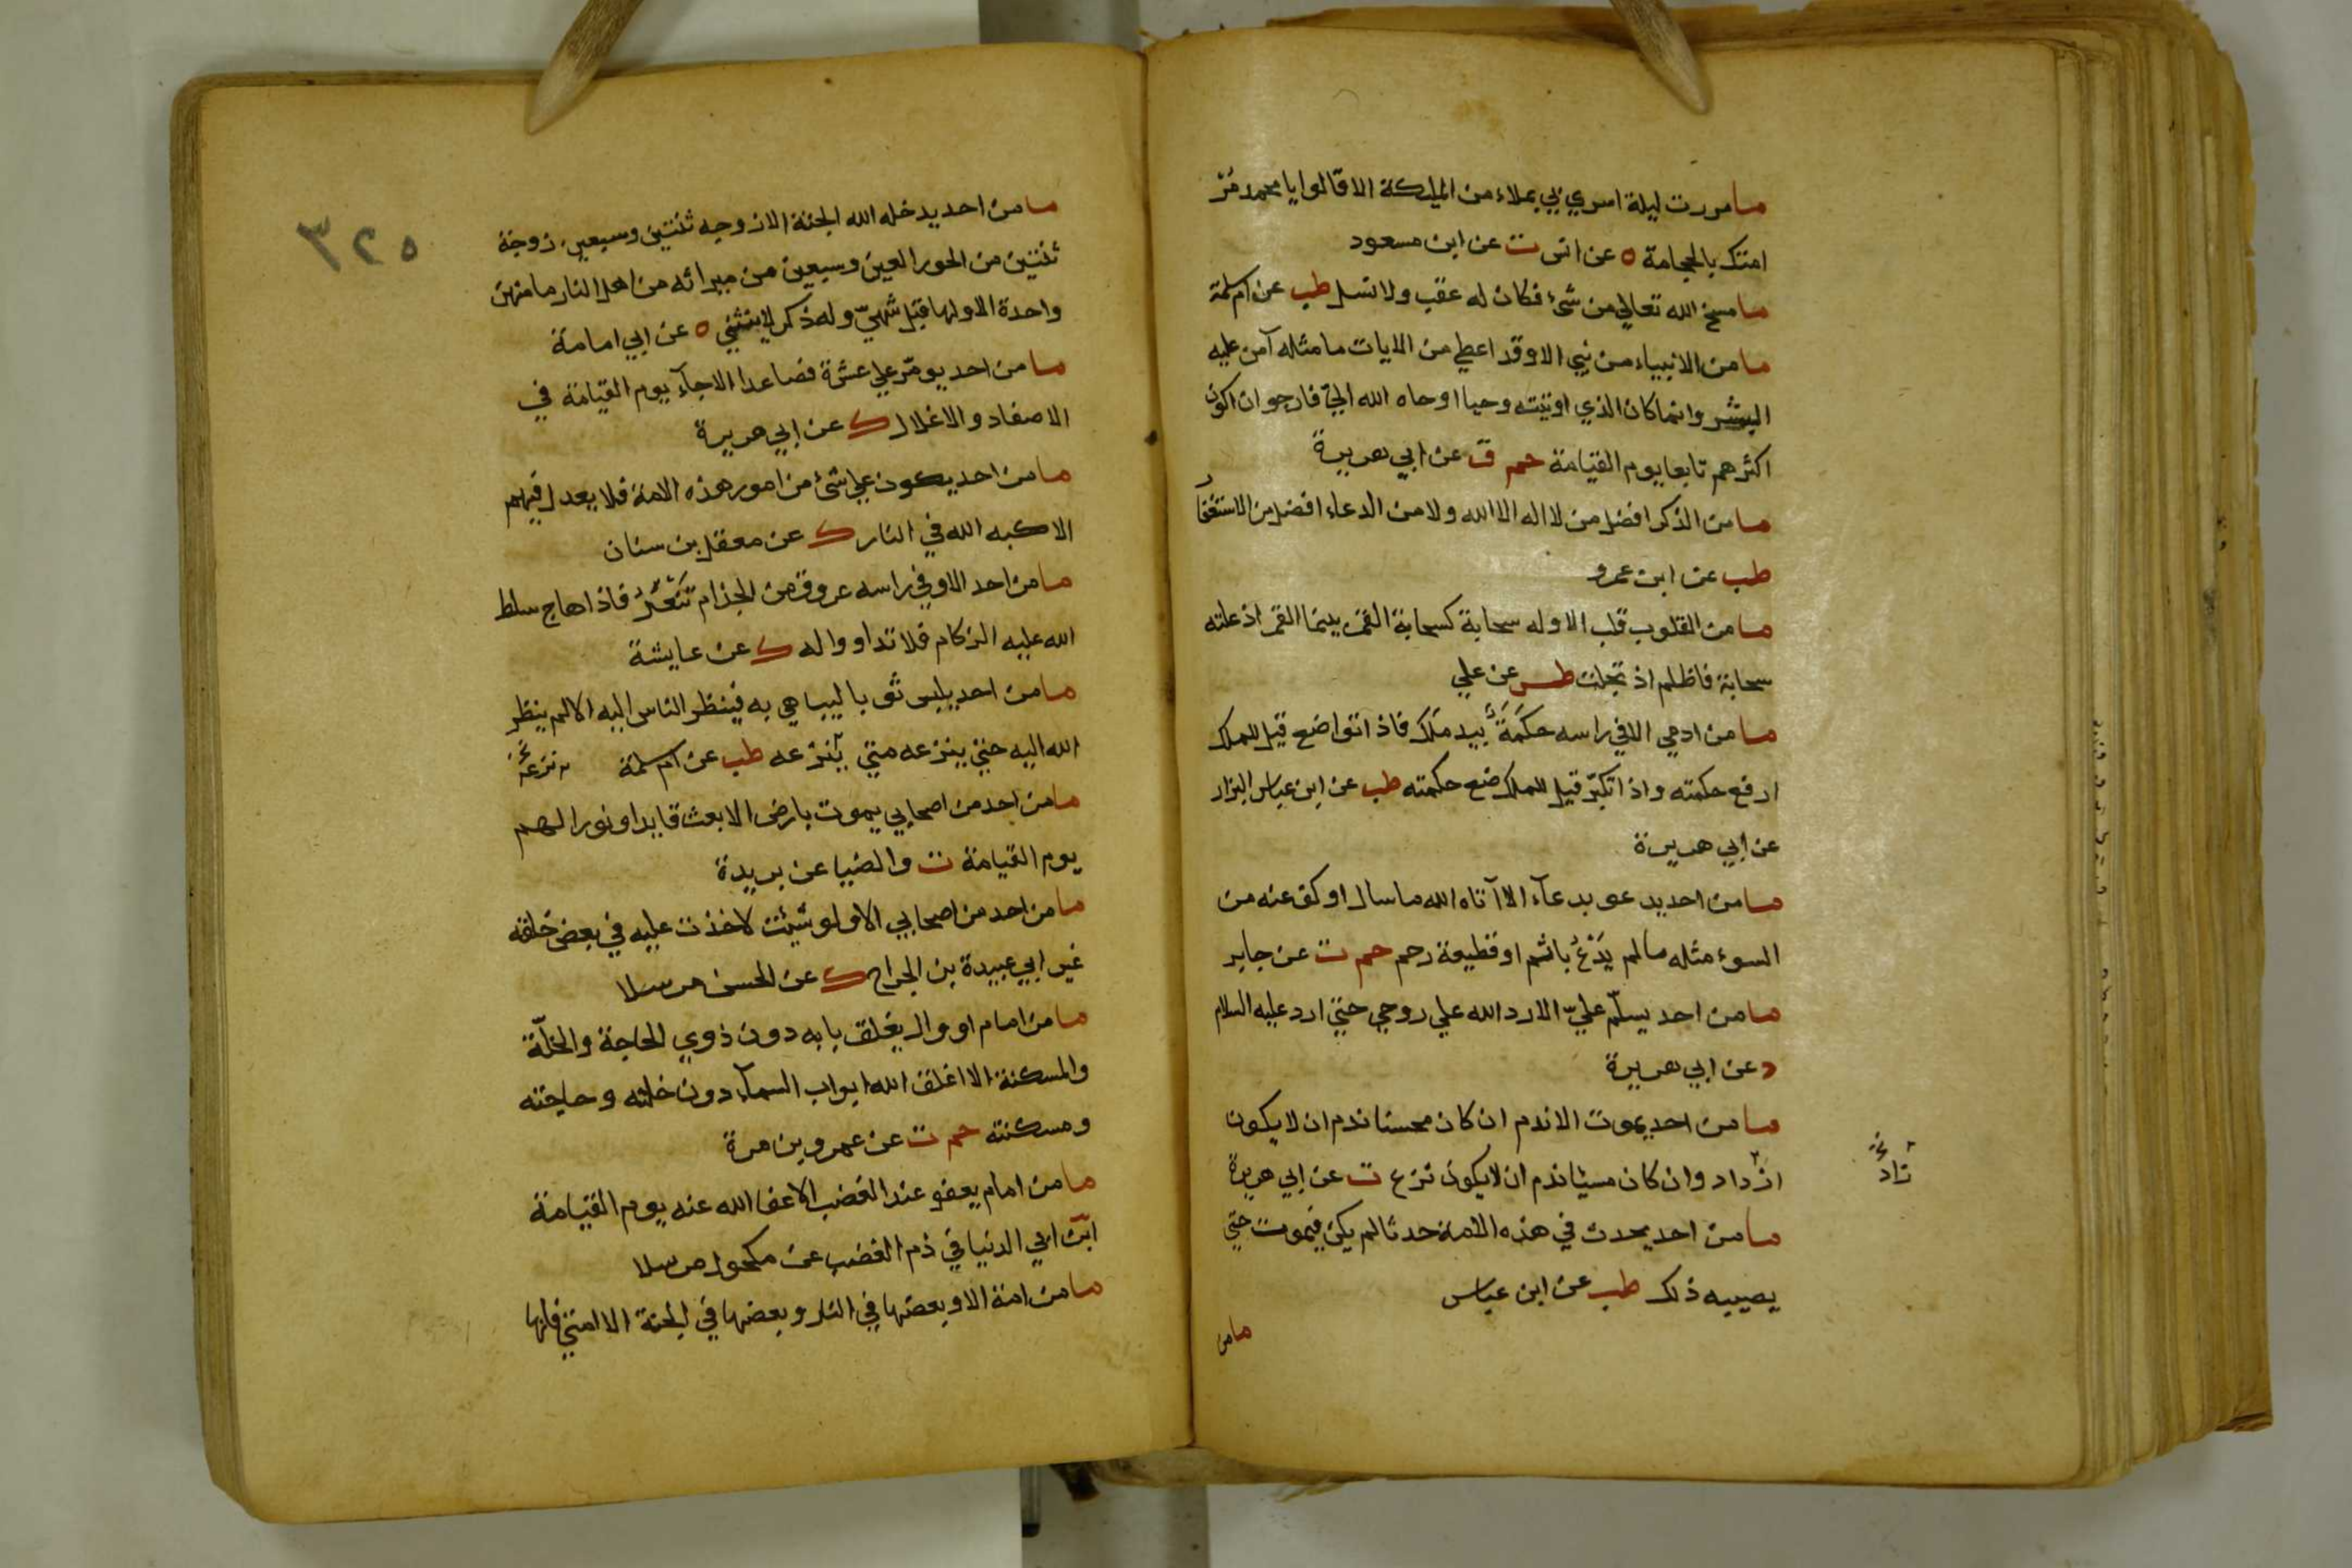 ما مررت ليلة اسري بي بملاء من المليكة الا قالوا يا محمد مُرْ
امتك بالحجامة ه عن انس ت عن ابن مسعود
ما مسخ الله تعالي من شئ فكان له عقب ولا نسل طب عن ام سلمة
ما من الانبياء من نبي الا وقد اعطي من الايات ما مثله آمن عليه
البشر وانما كان الذي اوتيته وحيا اوحاه الله اليّ فارجو ان اكون
اكثرهم تابعا يوم القيامة حم ق عن ابي هريرة
ما من الذكر افضل من لا اله الا الله ولا من الدعاء افضل من الاستغفار
طب عن ابن عمرو
ما من القلوب قلب الا وله سحابة كسحابة القمر بينما القمر اذ علته
سحابة فاظلم اذ تجلت طس عن علي
ما من ادمي الا في راسه حكَمَةٌ بيد ملَك فاذا تواضع قيل للملك
ارفع حكمته واذا تكبّر قيل للملك ضع حكمته طب عن ابن عباس البزار
عن ابي هريرة
ما من احد يدعو بدعآء الا آتاه الله ما سال او كف عنه من
السوء مثله ما لم يَدْعُ باثم او قطيعة رحم حم ت عن جابر
ما من احد يسلّم عليّ الا رد الله علي روحي حتي ارد عليه السلام
د عن ابي هريرة
ما من احد يموت الا ندم ان كان محسنا ندم ان لا يكون
ازداد وان كان مسيئا ندم ان لا يكون نزع ت عن ابي هريرة
زاد خ
ما من احد يحدث في هذه الامة حدثا لم يكن فيموت حتي
يصيبه ذلك طب عن ابن عباس
ما من
٣٢٥
ما من احد يدخله الله الجنة الا زوجه ثنتين وسبعين زوجة
ثنتين من الحور العين وسبعين من ميراثه من اهل النار ما منهن
واحدة الا ولها قبل شهيّ وله ذكر لا ينثني ه عن ابي امامة
ما من احد يومّر علي عشرة فصاعدا الا جآء يوم القيامة في
الاصفاد والاغلال ك عن ابي هريرة
ما من احد يكون علي شئ من امور هذه الامة فلا يعدل فيهم
الا كبه الله في النار ك عن معقل بن سنان
ما من احد الا وفي راسه عروق من الجذام تَنْعَرُ فاذا هاج سلط
الله عليه الزكام فلا تداووا له ك عن عايشة
ما من احد يلبس ثوبا ليباهي به فينظر الناس اليه الا لم ينظر
الله اليه حتي ينزعه متي ينزعه طب عن ام سلمة نزعه خ
ما من احد من اصحابي يموت بارض الا بعث قايدا ونورا لهم
يوم القيامة ت والضيا عن بريدة
ما من احد من اصحابي الا ولو شيئت لاخذت عليه في بعض خلقه
غير ابي عبيدة بن الجراح ك عن الحسن مرسلا
ما من امام او وال يغلق بابه دون ذوي الحاجة والخلّة
والمسكنة الا اغلق الله ابواب السمآء دون خلته وحاجته
ومسكنته حم ت عن عمرو بن مرة
ما من امام يعفو عند الغضب الا عفا الله عنه يوم القيامة
ابن ابي الدنيا في ذم الغضب عن مكحول مرسلا
ما من امة الا وبعضها في النار وبعضها في الجنة الا امتي فانها